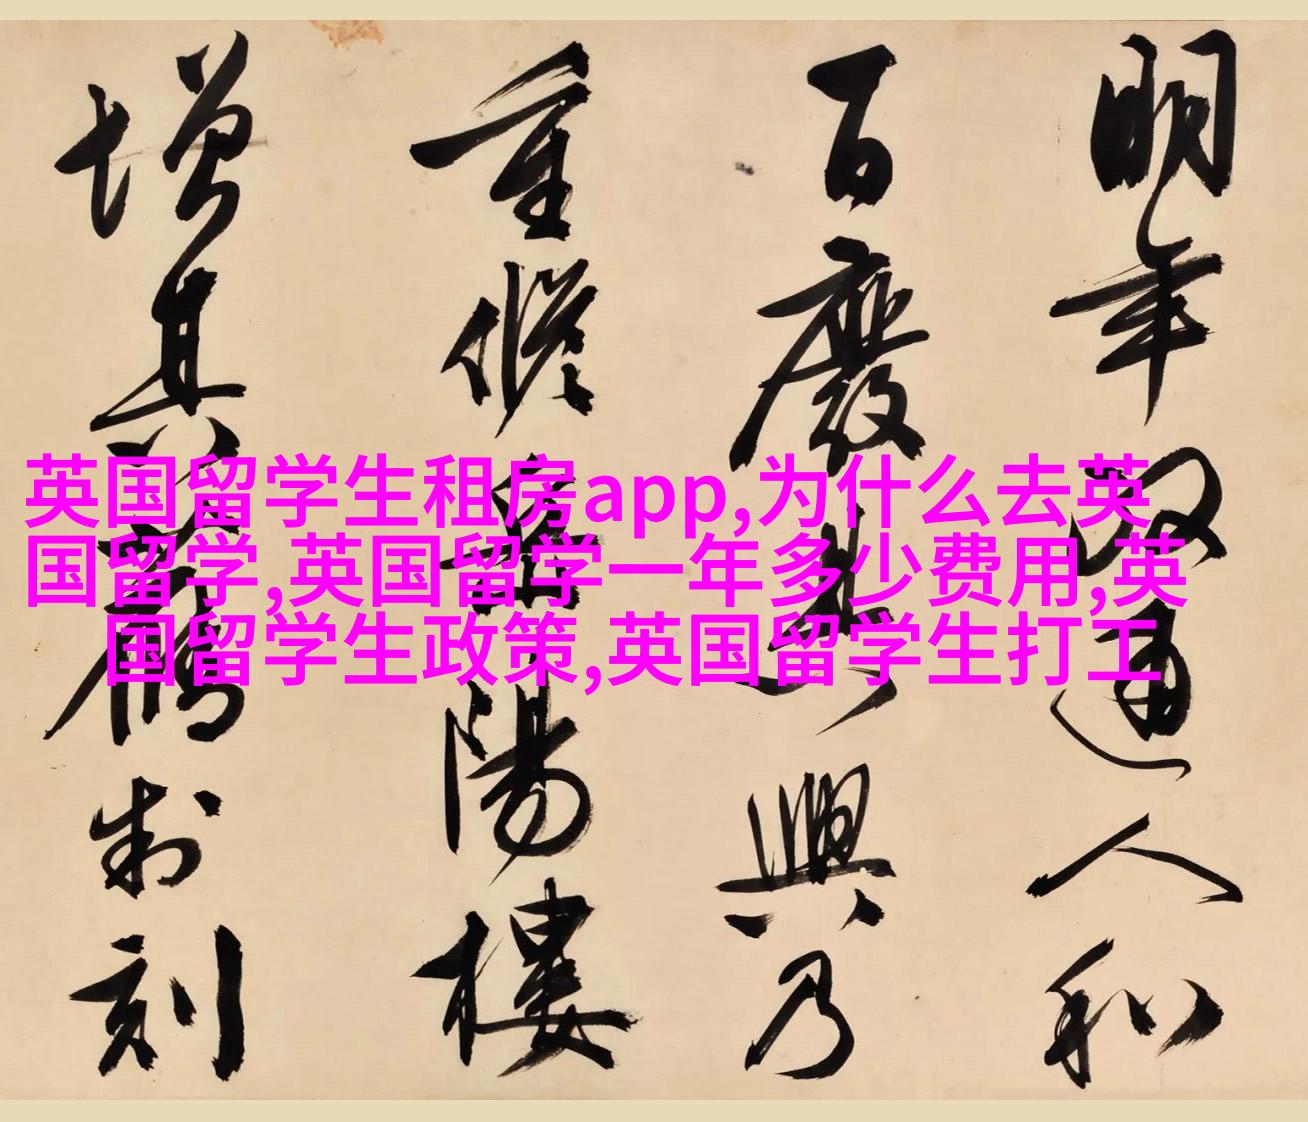 明年政通人和
百廢具興乃
重脩岳陽樓
增其舊制刻
英国留学生租房app,为什么去英
国留学,英国留学一年多少费用,英
国留学生政策,英国留学生打工